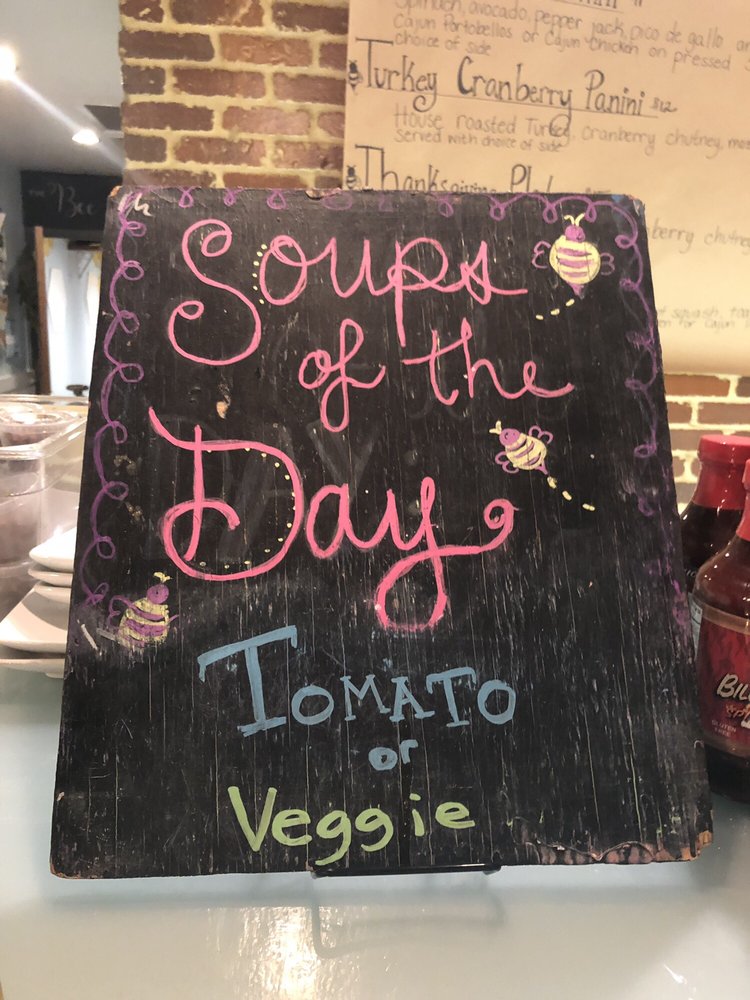 Spinach, avocado, pepper jack, pico de gallo
Cajun Portobellos or Cajun Chicken on pressed
choice of side
Turkey Cranberry Panini $12
House roasted Turkey, cranberry chutney,
served with choice of side
Thanksgiving
cranberry chutney
squash,
or Cajun
Bee
Soups
of the
Day
Tomato
or
Veggie
GLUTEN
FREE